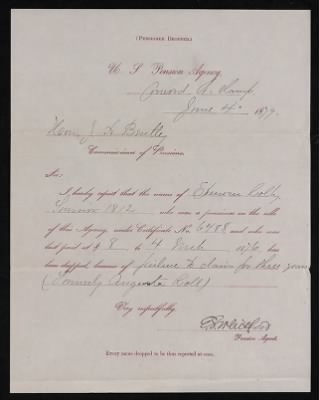 (Pensioner Dropped.)
U. S. Pension Agency,
Concord N. Hamp,
June 4th 1879.
Hon. J. A. Bentley
Commissioner of Pensions.
Sir:
I hereby report that the name of Ebenezer Colby
1812 who was a pensioner on the rolls
of this Agency, under Certificate No. 6488 and who was
last paid at $ 8 to 4 March 1876, has
been dropped, because of failure to claim for three years
(Formerly Augusta Roll)
Very respectfully,
Pension Agent.
Every name dropped to be thus reported at once.